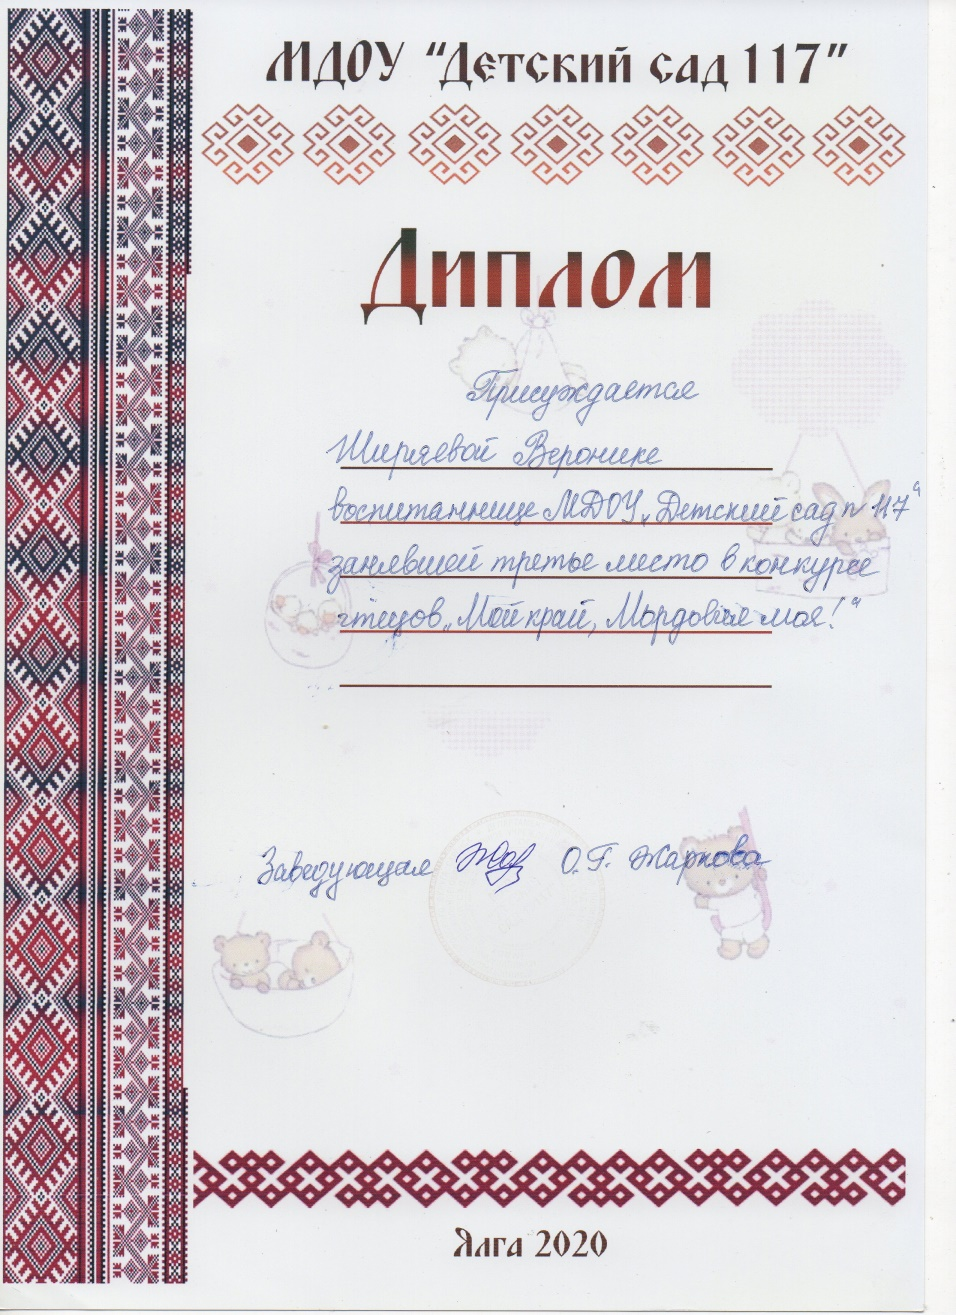 МДОУ “Детский сад 117”
Диплом
Присуждается
Ширяевой Веронике
воспитаннице МДОУ „Детский сад п 117“
занявшей третье место в конкурсе
чтецов „Мой край, Мордовия моя!“
Заведующая О.Г. Жаркова
Ялга 2020